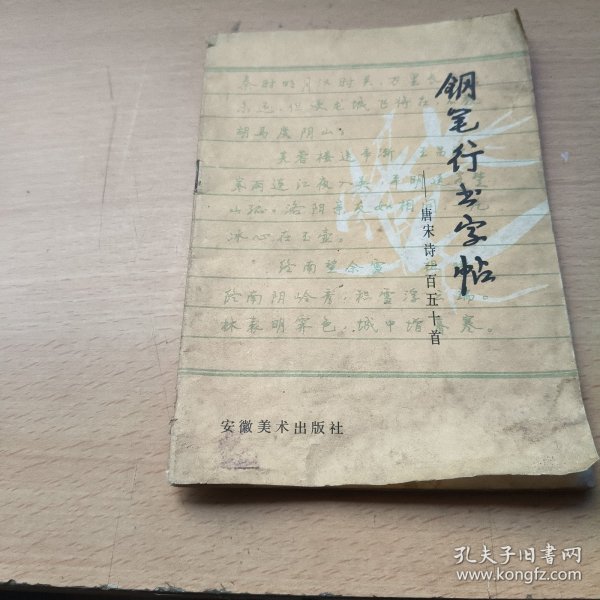 钢笔行书字帖
——唐宋诗一百五十首
秦时明月汉时关,万里长
未还。但使龙城飞将在
胡马度阴山。
芙蓉楼送辛渐 王昌
寒雨连江夜入吴,平明送
山孤。洛阳亲友如相问
冰心在玉壶。
终南望余雪
终南阴岭秀,积雪浮 端。
林表明霁色,城中增暮寒。
安徽美术出版社
孔夫子旧书网
www.kongfz.com